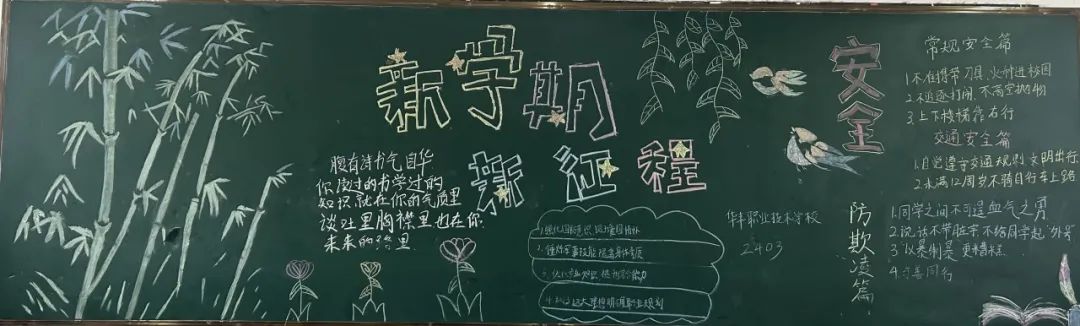 新学期
新征程
腹有诗书气自华
你读过的书学过的
知识就在你的气质里
谈吐里胸襟里也在你
未来的路里
1.强化国防意识
2.锤炼军事技能 提高身体素质
4.
职业规划
华丰职业技术学校
2403
安全
常规安全篇
1.不准携带刀具、火种进校园
2.不追逐打闹,不高空抛物
3.上下楼梯靠右行
交通安全篇
1.自觉遵守交通规则 文明出行
2.未满12周岁不骑自行车上路
防欺凌篇
1.同学之间不可逞血气之勇
2.说话不带脏字 不给同学起“外号”
3.“以暴制暴”更糟糕
4.与善同行